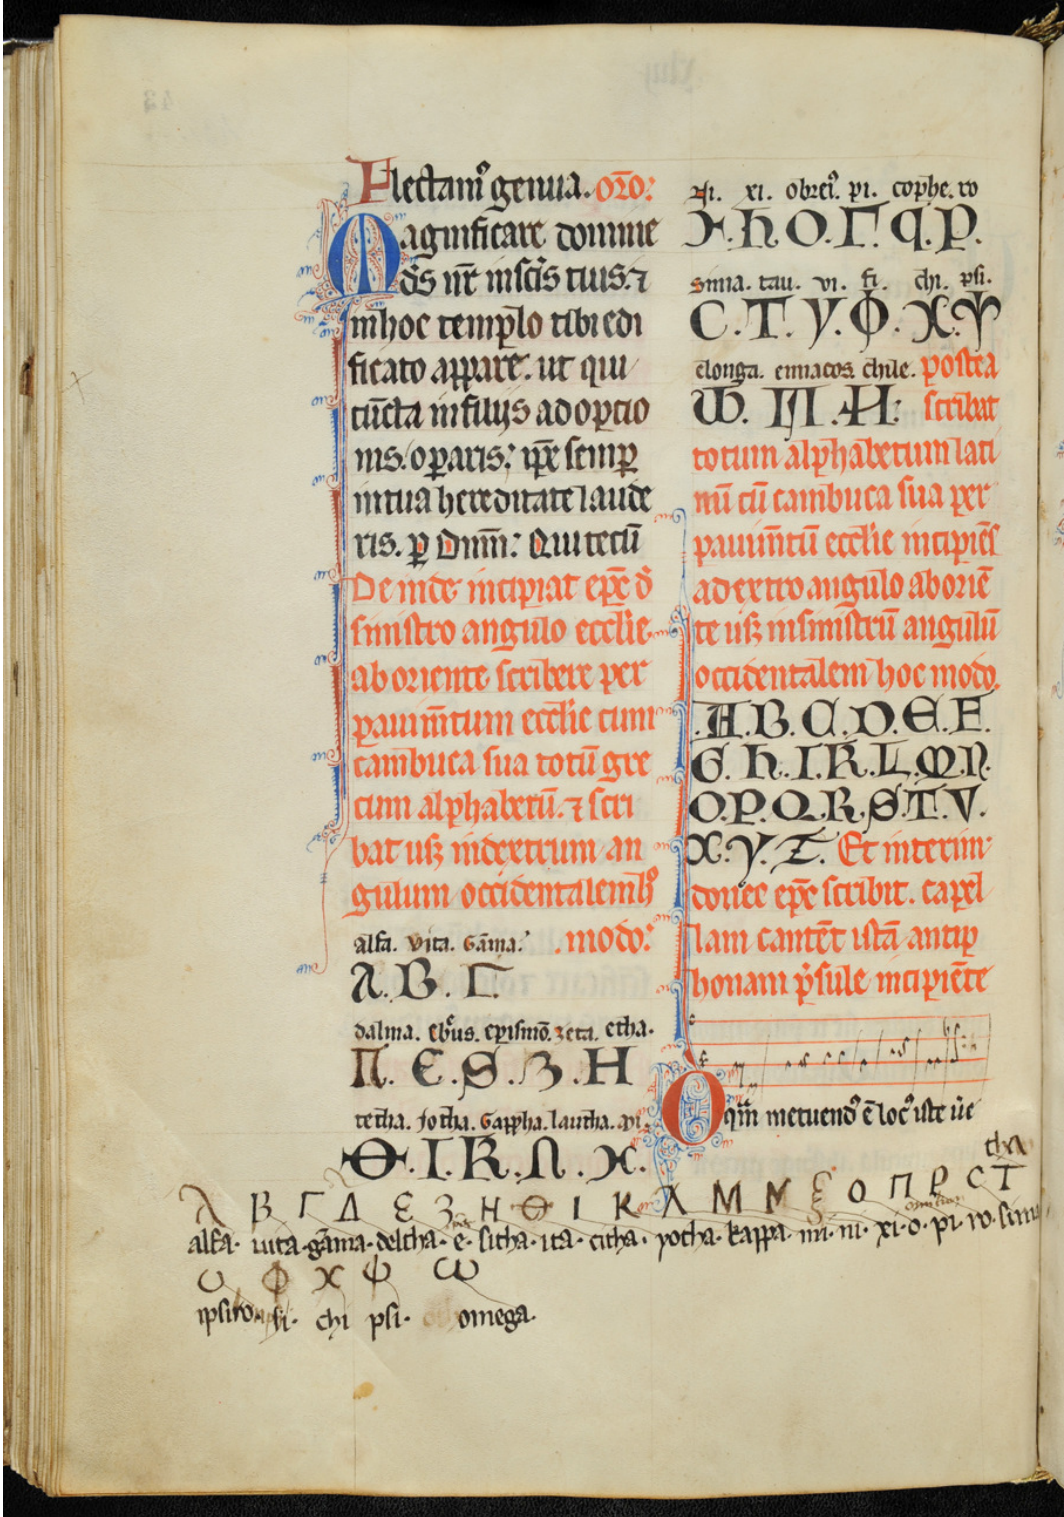 Flectam᷒ genua. or̃o:
Magnificare domine
ds̃ nr̃ in scĩs tuis. ⁊
in hoc templo tibi edi
ficato appare. ut qui
cũcta in filijs adoptio
nis. opa͛ris: ip̃e semp̱
in tua hereditate laude
ris. p̱ dnm̃: Qui tecũ
De inde incipiat ep̃e d̃
sinistro angulo ecclie
ab oriente scribere per
pauim̃tum ecclie cum
cambuca sua totũ gre
cum alphabetũ. ⁊ scri
bat usꝫ in dextrum an
gulum occidentalem h᷒
modo:
alfa. vita. Gãma.
A. B. Γ.
dalma. ebr᷒us. episimõ. zeta. etha.
Π. Є. S. Ʒ. H
tetha. Jotha. Gappha. lautha.
Θ. I. K. Λ. X.
xi. pi. cophe. ro
X. h. O. Γ. q. P.
sima. tau. vi. fi. chi. psi.
C. T. y. Φ. X. Ψ
elonga. enniacos. chile. postea
scribat
totum alphabetum lati
nũ cũ cambuca sua per
pauim̃tũ ecclie incipiẽs
a dextro angulo ab oriẽ
te usꝫ in sinistrũ angulũ
occidentalem hoc modo.
.A. B. C. D. E. F.
G. h. I. K. L. M. N.
O. P. Q. R. S. T. V.
X. y. Z. Et interim
donec ep̃e scribit. capel
lam cantẽt istã antip
honam p̃sule incipiẽte
O qm̃ metuend᷒ ẽ loc᷒ iste ũe
λ B Γ Δ Є Ʒ H Θ I K Λ M N Ξ O Π P C T
alfa· uita· gãma· deltha· e· sitha· ita· citha· yotha· kappa· mi· ni· xi· o· pi· ro·
υ Φ X Ψ ω
fi· chi psi· omega·